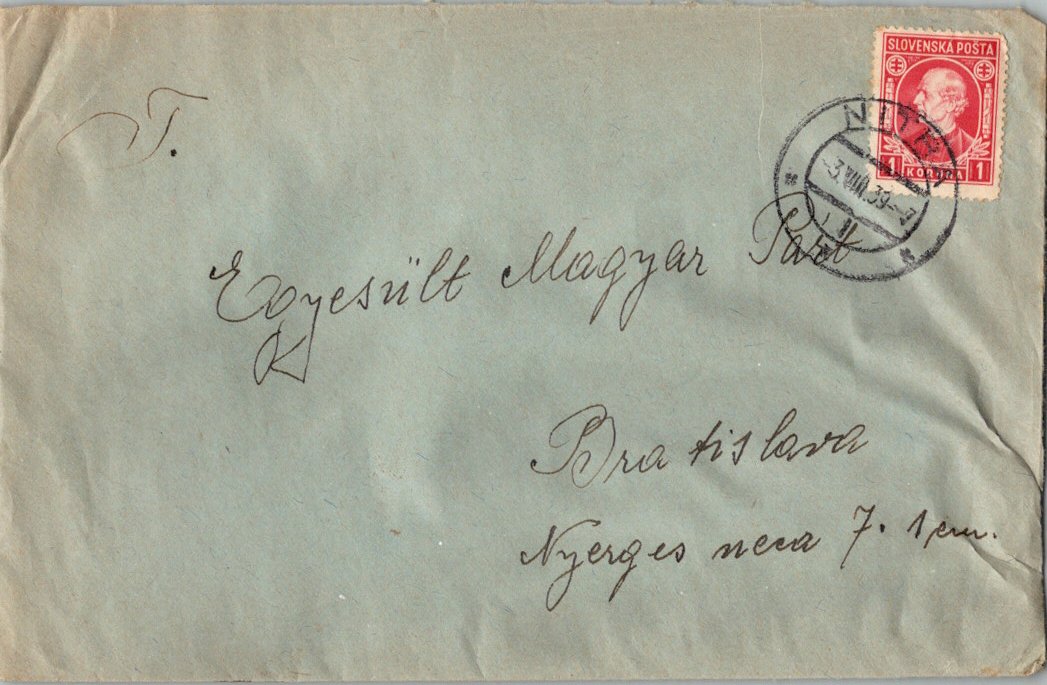 SLOVENSKÁ POŠTA
1 KORUNA 1
NITRA
-3.VIII.39--7
T.
Egyesült Magyar Párt
Bratislava
Nyerges ucca 7. 1 em.